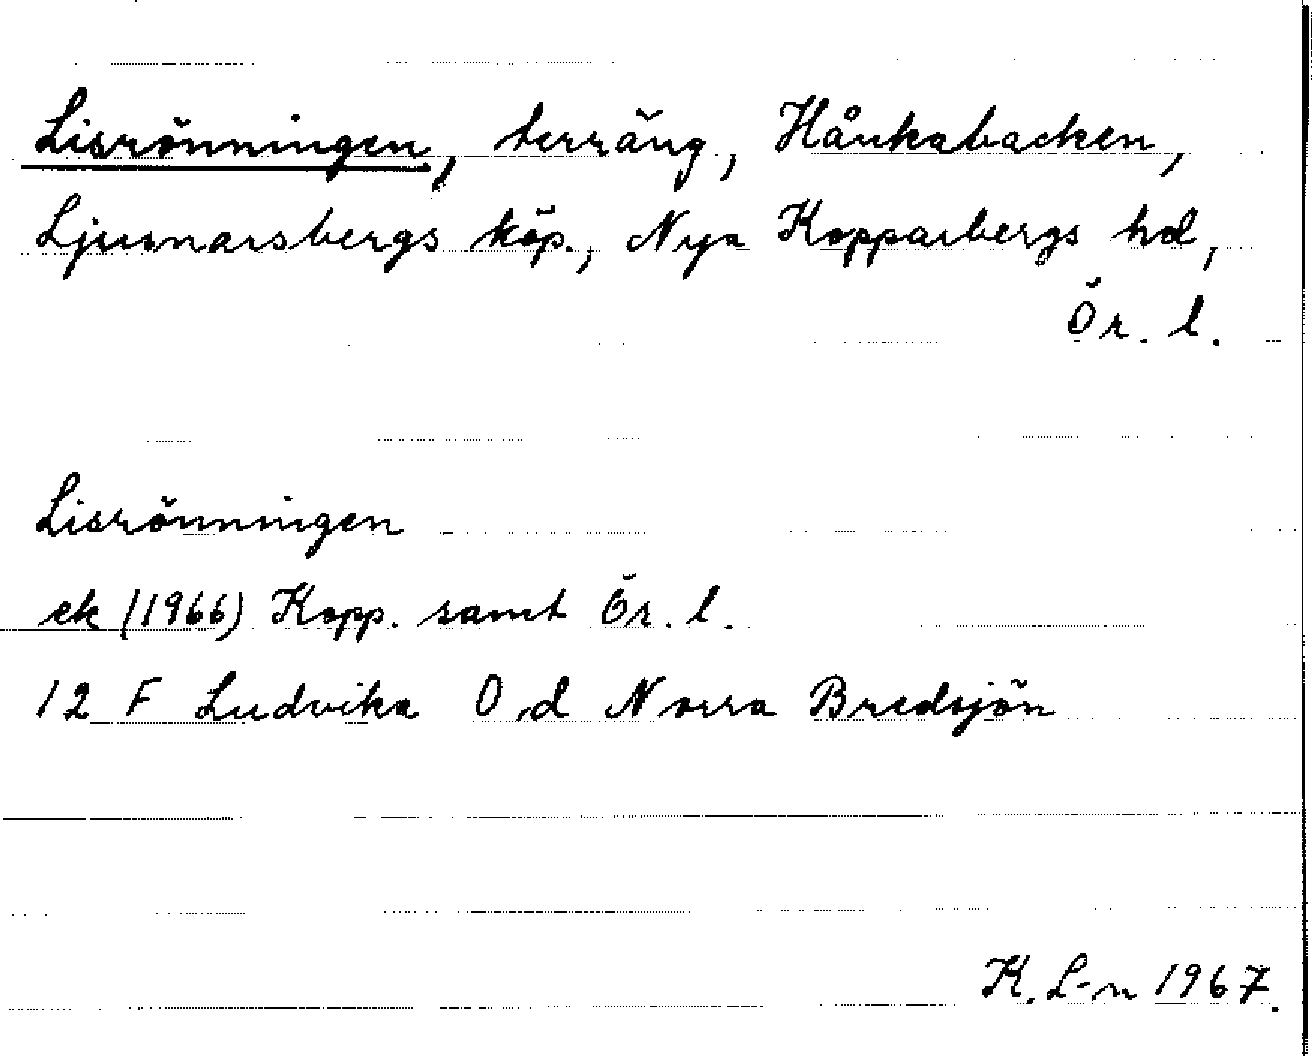 Lisrönningen, terräng, Hånkabacken,
Ljusnarsbergs köp., Nya Kopparbergs hd,
Ör. l.
Lisrönningen
ek (1966) Kopp. samt Ör. l.
12 F Ludvika 0 d Norra Bredsjön
K. L-n 1967.